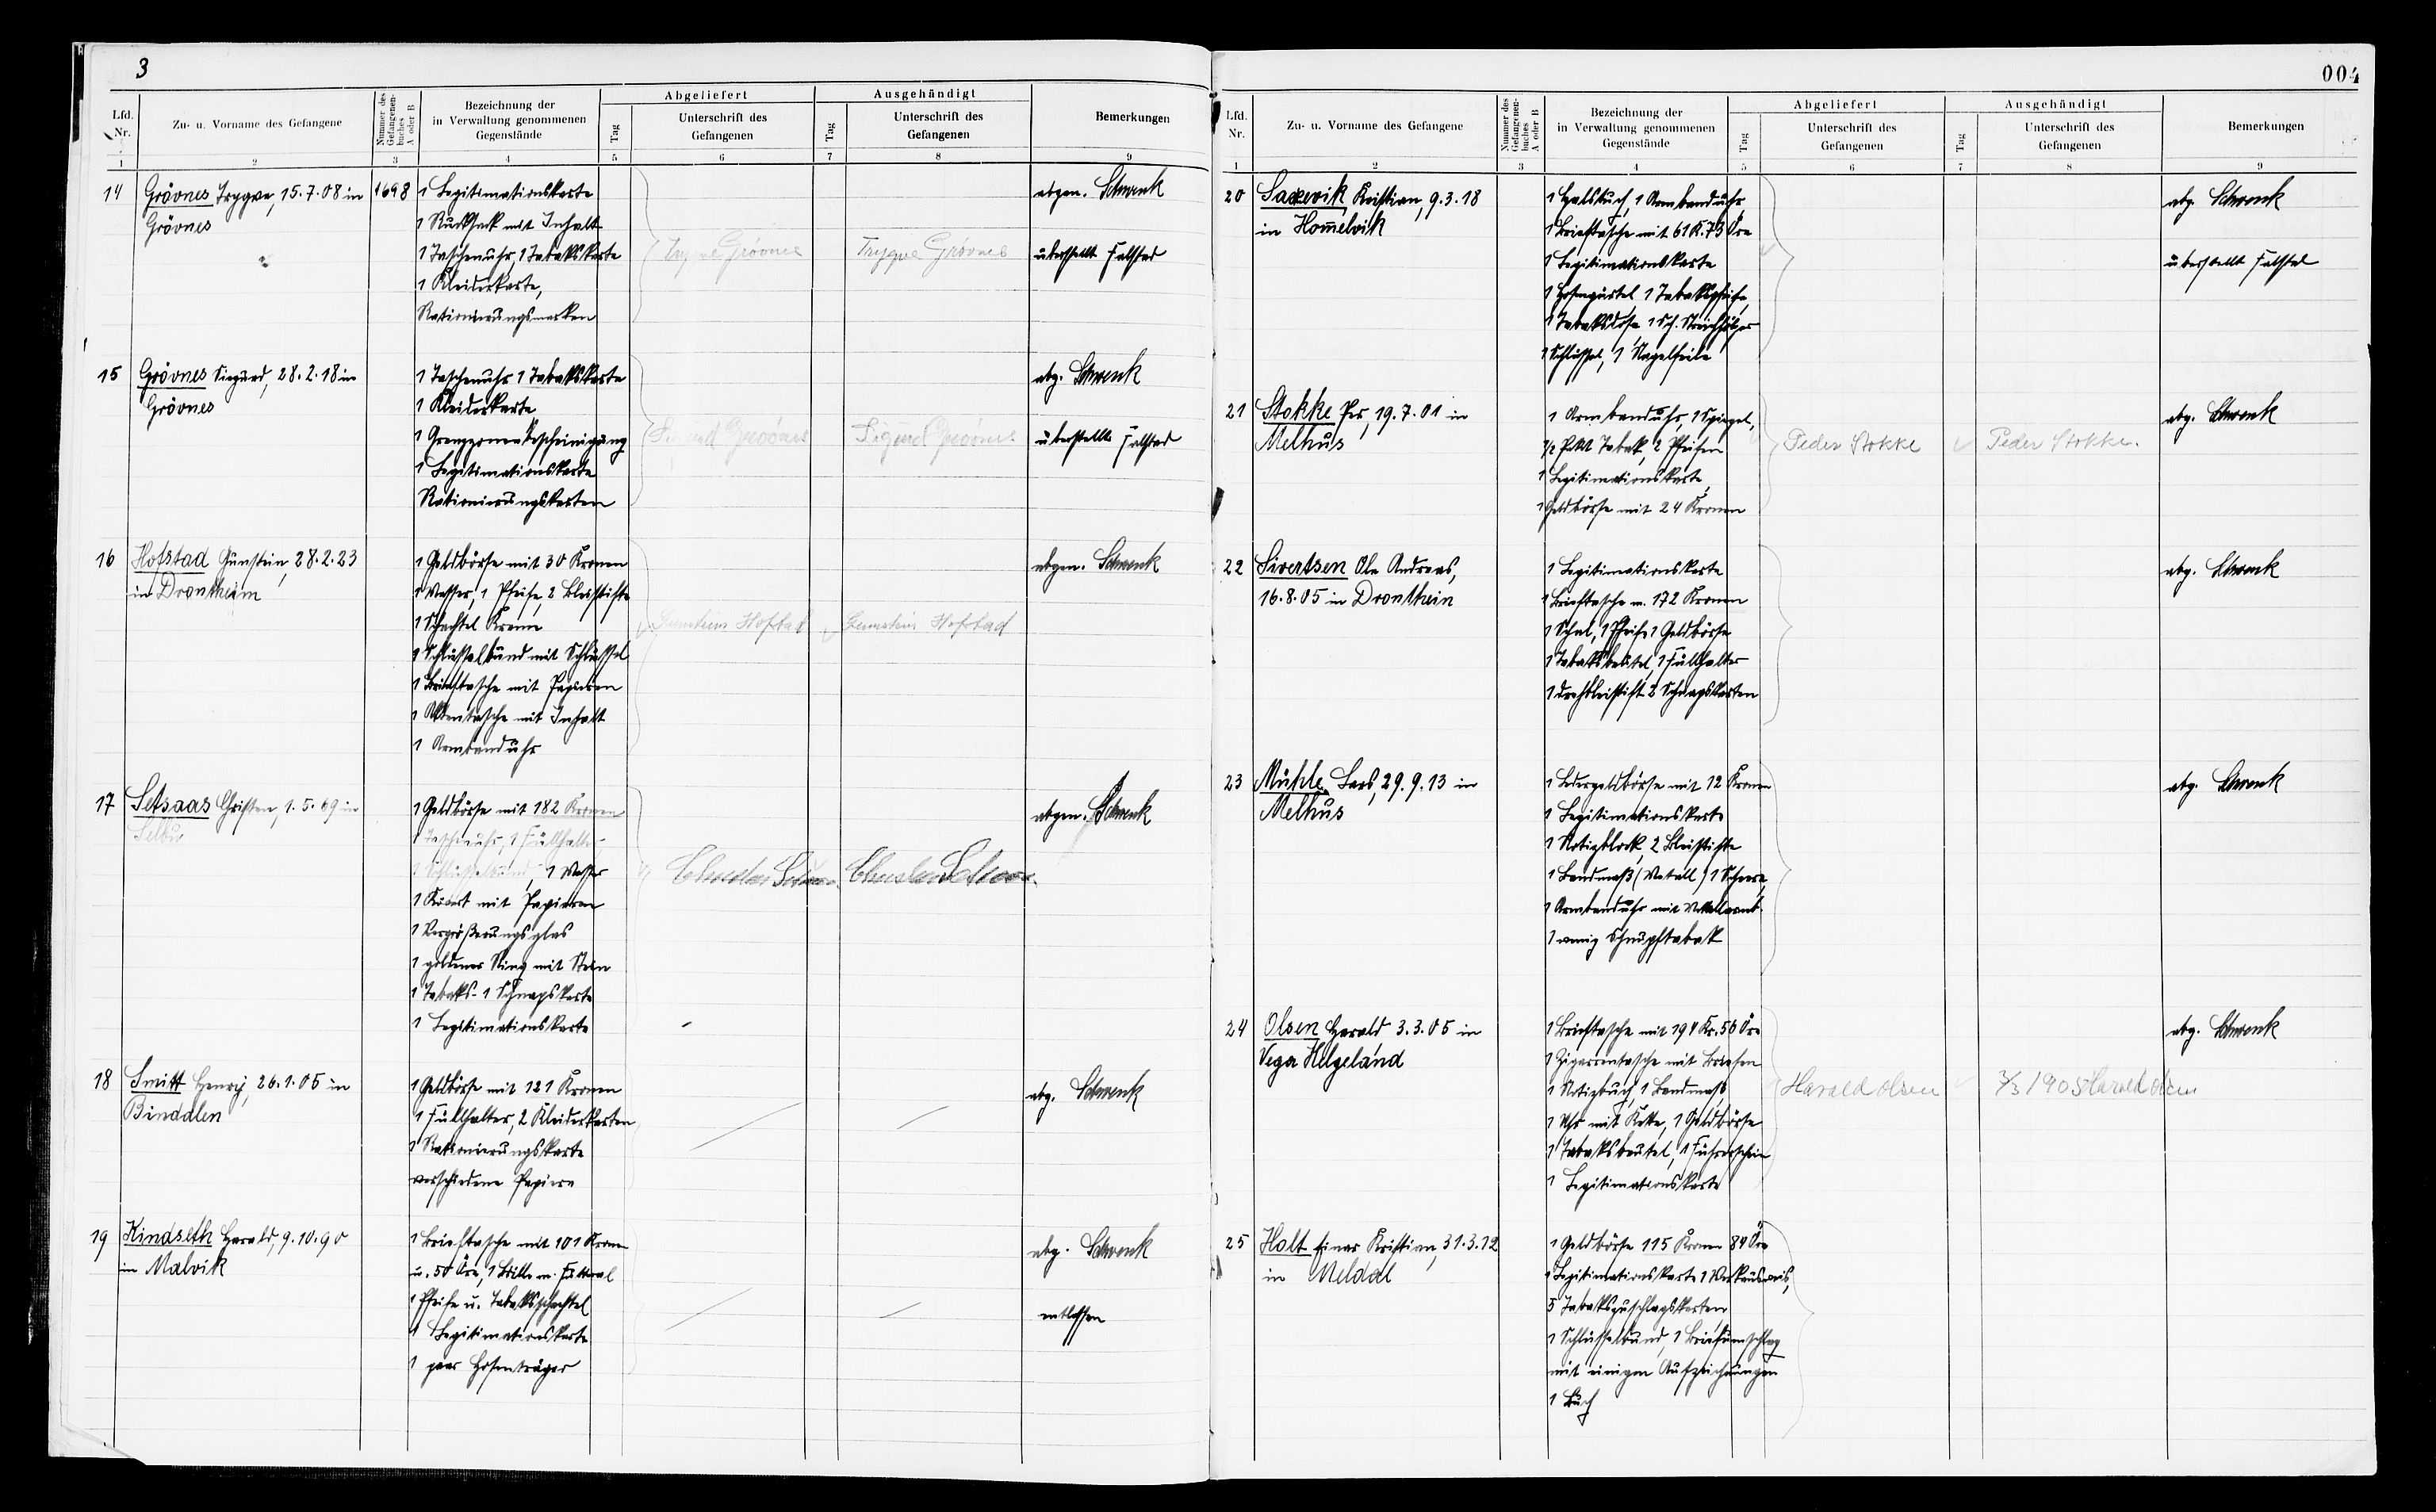 3
Lfd. Nr.
Zu- u. Vorname des Gefangene
Nummer des Gefangenen- buches A oder B
Bezeichnung der in Verwaltung genommenen Gegenstände
Abgeliefert
Tag
Unterschrift des Gefangenen
Ausgehändigt
Tag
Unterschrift des Gefangenen
Bemerkungen
1 2 3 4 5 6 7 8 9
14 Grövnes Trygve, 15.7.08 in 1698 1 Legitimationskarte abgen. Schwenk
Grövnes 1 Rucksack mit Inhalt
1 Taschenuhr, 1 Tabakskarte Trygve Grövnes Trygve Grövnes überstellt Falstad
1 Kleiderkarte,
Rationierungsmarken
15 Grövnes Sigurd, 28.2.18 in 1 Taschenuhr 1 Tabakskarte abg. Schwenk
Grövnes 1 Kleiderkarte,
1 Grenzzonenbescheinigung Sigurd Grövnes Sigurd Grövnes überstellt Falstad
1 Legitimationskarte
Rationierungskarten
16 Hofstad Gunstein, 28.2.23 1 Geldbörse mit 30 Kronen abgen. Schwenk
in Drontheim 1 Messer, 1 Pfeife, 2 Bleistifte
1 Schachtel Kreme Gunstein Hofstad Gunstein Hofstad
1 Schlüsselbund mit Schlüssel
1 Brieftasche mit Papieren
1 Aktentasche mit Inhalt
1 Armbanduhr
17 Setsaas Christen, 1.5.69 in 1 Geldbörse mit 182 Kronen abgen. Schwenk
Selbu 1 Taschenuhr, 1 Füllhalter
1 Schlüsselbund, 1 Messer
1 Kuvert mit Papieren
1 Vergrößerungsglas
1 goldener Ring mit Stein
1 Tabaks- 1 Schnapskarte
1 Legitimationskarte
18 Smitt Henry, 26.1.05 in 1 Geldbörse mit 121 Kronen abg. Schwenk
Binddlen 1 Füllhalter, 2 Kleiderkarten
1 Rationierungskarte
verschiedene Papiere
19 Kindseth Harald, 9.10.90 1 Brieftasche mit 101 Kronen abg. Schwenk
in Malvik u. 50 Öre, 1 Brille m. Futteral
1 Pfeife u. Tabaksschachtel entlassen
1 Legitimationskarte
1 paar Hosenträger
004
Lfd. Nr.
Zu- u. Vorname des Gefangene
Nummer des Gefangenen- buches A oder B
Bezeichnung der in Verwaltung genommenen Gegenstände
Abgeliefert
Tag
Unterschrift des Gefangenen
Ausgehändigt
Tag
Unterschrift des Gefangenen
Bemerkungen
1 2 3 4 5 6 7 8 9
20 Kristian, 9.3.18 1 Halstuch, 1 Armbanduhr abg. Schwenk
in Hom̄elvik 1 Brieftasche mit 61 K. 73 Öre
1 Legitimationskarte überstellt Falstad
1 Hosengürtel 1 Tabakspfeife,
1 Tabaksdose 1 Sch. Streichhölzer
1 Schlüssel, 1 Nagelfeile
21 Stokke Per, 19.7.01 in 1 Armbanduhr, 1 Spiegel, abg. Schwenk
Melhus 1/2 Pakt Tabak, 2 Pfeifen Peder Stokke Peder Stokke.
1 Legitimationskarte,
1 Geldbörse mit 24 Kronen
22 Sivertsen Ole Andreas, 1 Legitimationskarte abg. Schwenk
16.8.05 in Drontheim 1 Brieftasche m. 172 Kronen
1 Schal, 1 Pfeife 1 Geldbörse
1 Tabaksbeutel, 1 Füllhalter
1 Drehbleistift 2 Schnapskarten
23 Muhle Lars, 29.9.13 in 1 Ledergeldbörse mit 12 Kronen abg. Schwenk
Melhus 1 Legitimationskarte
1 Notizblock, 2 Bleistifte
1 Bandmaß (Metall) 1 Schere,
1 Armbanduhr mit
1 wenig Schnupftabak
24 Olsen Harald 3.3.05 in 1 Brieftasche mit 191 Kr. 56 Öre abg. Schwenk
Vega Helgeland 1 Zigarrentasche mit Briefen
1 Notizbuch, 1 Bandmaß, Harald Olsen 3/3 1905 Harald Olsen
1 Uhr mit Kette, 1 Geldbörse
1 Tabaksbeutel, 1 Führerschein
1 Legitimationskarte
25 Holt Einar Kristian, 31.3.12 1 Geldbörse 115 Kronen 84 Öre
in Meldal 1 Legitimationskarte 1 Werkausweis,
5 Tabakszuschlagskarten
1 Schlüsselbund, 1 Briefumschlag
mit einigen Aufzeichnungen
1 Buch